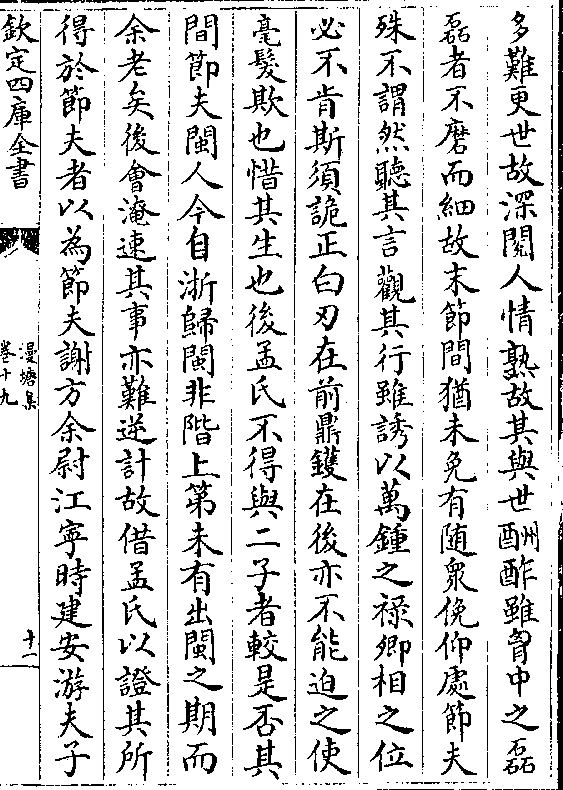 多難更世故深閱人情熟故其與世酬酢雖胷中之磊
磊者不磨而細故末節間猶未免有随衆俛仰處節夫
殊不謂然聽其言觀其行雖誘以萬鍾之禄卿相之位
必不肯斯須詭正白刃在前鼎鑊在後亦不能迫之使
毫髮欺也惜其生也後孟氏不得與二子者較是否其
間節夫閩人今自浙歸閩非階上第未有出閩之期而
余老矣後會淹速其事亦難逆計故借孟氏以證其所
得於節夫者以為節夫謝方余尉江寜時建安游夫子
欽定四庫全書
漫塘集
卷十九
十一